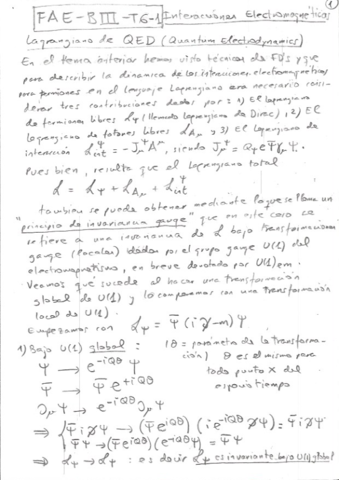 ①
FAE-BIII-T6-1 Interacciones Electromagnéticas
Lagrangiano de QED (Quantum Electrodynamics)
En el tema anterior hemos visto técnicas de FD's y que
para describir la dinámica de las interacciones electromagnéticas
para fermiones en el lenguaje Lagrangiano era necesario consi-
derar tres contribuciones dadas por: 1) El Lagrangiano
de fermiones libres ℒΨ (llamado Lagrangiano de Dirac), 2) El
Lagrangiano de fotones libres ℒAμ y 3) El Lagrangiano de
interacción ℒ^Ψ_int = -J^Ψ_μ A^μ, siendo J^Ψ_μ = Q_f e Ψ̄ γ_μ Ψ.
Pues bien, resulta que el Lagrangiano total
ℒ = ℒΨ + ℒAμ + ℒ^Ψ_int
también se puede obtener mediante lo que se llama un
"principio de invariancia gauge" que en este caso se
refiere a una invariancia de ℒ bajo transformaciones
gauge (locales) dadas por el grupo gauge U(1) del
electromagnetismo, en breve denotado por U(1)em.
Veamos qué sucede al hacer una transformación
global de U(1) y lo comparamos con una transformación
local de U(1).
Empezamos con ℒΨ = Ψ̄ (i∂̸-m) Ψ
1) Bajo U(1) global: (θ = parámetro de la transforma-
Ψ → e^{-iQθ} Ψ ción) θ es el mismo para
Ψ̄ → Ψ̄ e^{+iQθ} todo punto x del
∂μΨ → e^{-iQθ} ∂μΨ espacio tiempo
⇒ { Ψ̄ i∂̸Ψ → (Ψ̄ e^{iQθ}) (i e^{-iQθ} ∂̸Ψ) = Ψ̄ i∂̸Ψ
Ψ̄Ψ → (Ψ̄ e^{iQθ}) (e^{-iQθ}Ψ) = Ψ̄Ψ
⇒ ℒΨ → ℒΨ : es decir ℒΨ es invariante bajo U(1) global